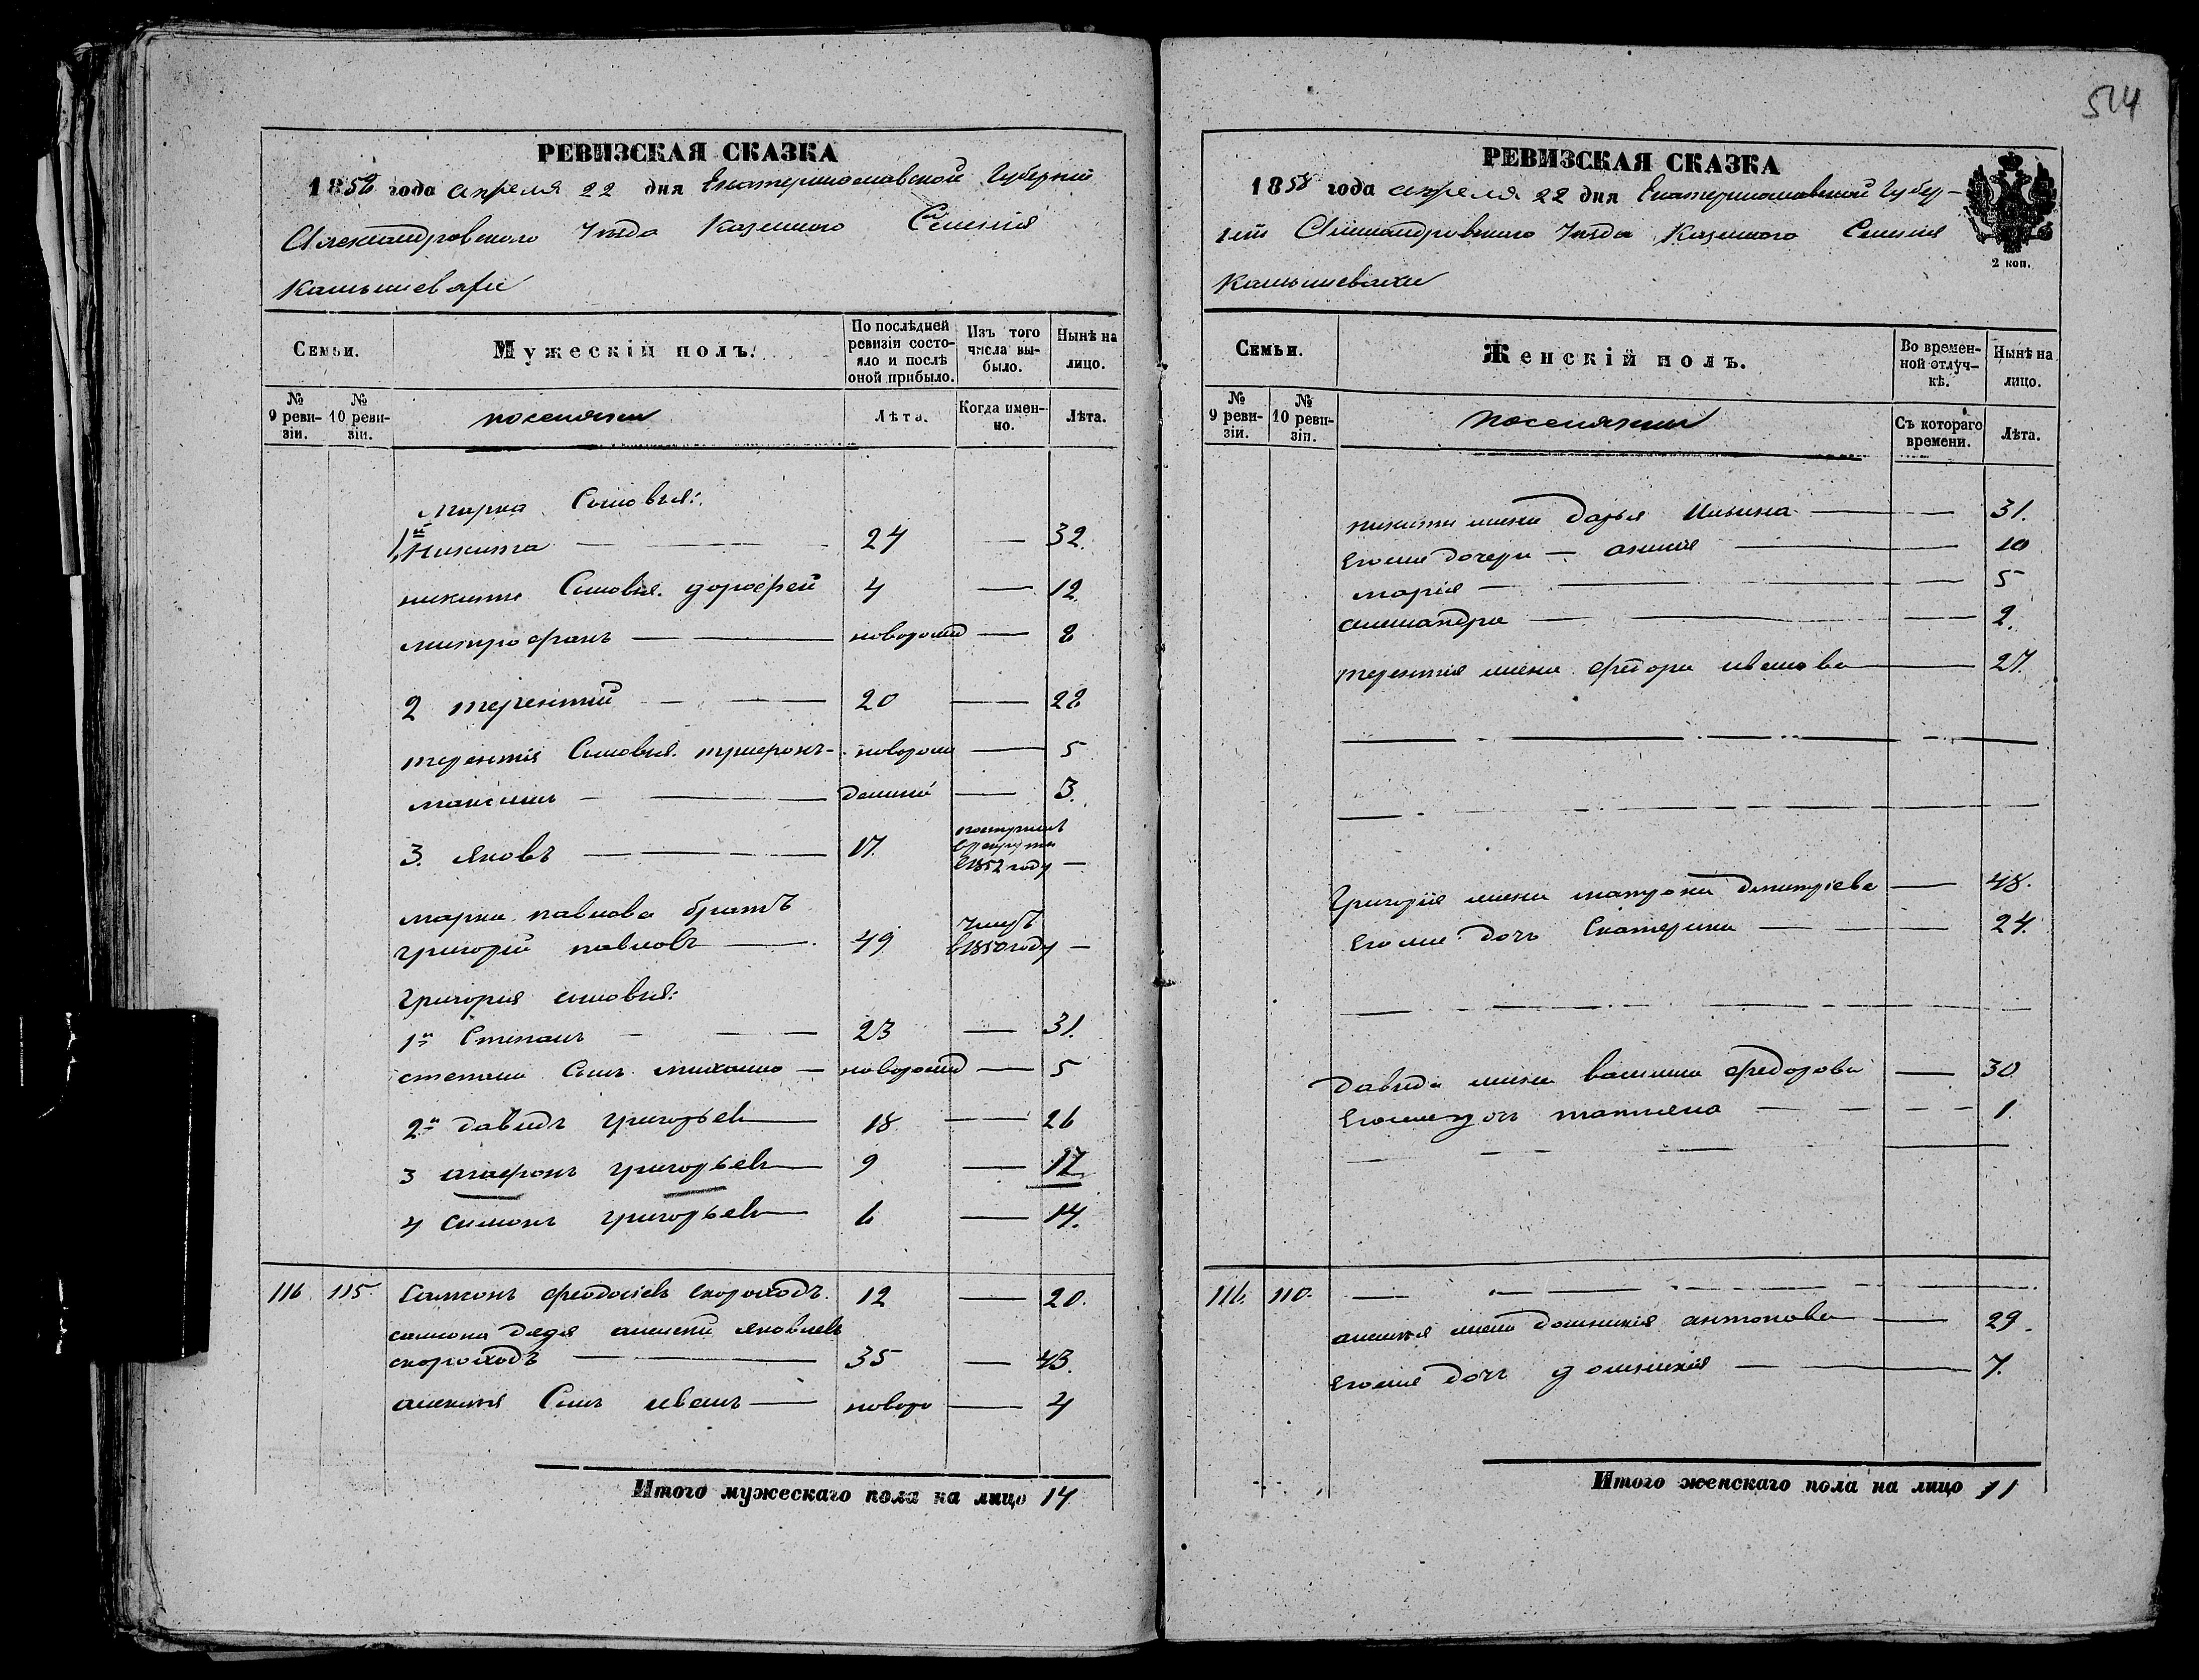 514
РЕВИЗСКАЯ СКАЗКА
1858 года апреля 22 дня Екатеринославской Губерніи
Александровского Уезда Казенного Селенія
Камышевахи
Семьи.
Мужескій полъ.
По послѣдней ревизіи состояло и послѣ оной прибыло.
Изъ того числа выбыло.
Нынѣ на лицо.
№ 9 ревизіи.
№ 10 ревизіи.
поселяне
Лѣта.
Когда именно.
Лѣта.
Марка Сыновья:
1й Никита — 24 — 32.
никиты Сыновья. дорофей 4 — 12.
митрофанъ — новорожд — 8
2 терентий — 20 — 28
терентія Сыновья. трифонъ - новорож — 5
максимъ — денный — 3.
3. яковъ — 17. поступилъ в рекруты в 1852 году —
марка павлова братъ
григорій павловъ — 49 умеръ в 1850 году —
Григория сыновья:
1й Степанъ — 23 — 31.
степана Сынъ михаило — новорожд — 5
2й давидъ григорьевъ — 18 — 26
3 агафонъ григорьевъ — 9 — 17
4 симонъ григорьевъ — 6 — 14.
116. 115. Самсонъ феодосіевъ скороходъ. 12 — 20.
самсона дядя алексей яковлевъ
скороходъ — 35 — 43.
алексея Сынъ иванъ — новоро — 4
Итого мужескаго пола на лицо 14
РЕВИЗСКАЯ СКАЗКА
1858 года апреля 22 дня Екатеринославской Губер-
ніи Александровского Уезда Казенного Селенія
Камышевахи
2 коп.
Семьи.
Женскій полъ.
Во временной отлучкѣ.
Нынѣ на лицо.
№ 9 ревизіи.
№ 10 ревизіи.
поселяне
Съ котораго времени.
Лѣта.
никиты жена Дарья Ильина — 31.
Егоже дочери — — 10
марія — 5
александра — 2.
терентія жена федора иванова — 27.
Григорія жена матрона дмитріева — 48.
Егоже дочь Екатерина — 24.
Давида жена василиса федорова — 30
Егоже дочь татіяна — 1.
116. 110.
алексея жена домникія антонова — 29.
Егоже дочь домникія — 7.
Итого женскаго пола на лицо 11